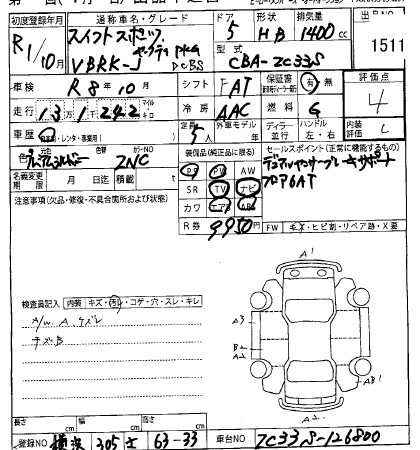 初度登録年月
通称車名・グレード
ドア
形状
排気量
出品番号
R1/10月
スイフトスポーツ
セーフティPKG
VBRK-J
DCBS
5
HB
1400cc
CBA-ZC33S
1511
車検
R8年10月
シフト
FAT
保証書
有・無
評価点
4
走行
131242
マイル
キロ
冷房
AAC
燃料
G
車歴
自家用・レンタ・事業用( )
定員
5人
外車モデル
年
ディーラー
並行
ハンドル
左・右
内装評価
C
色
プレミアムシルバー
色替
カラーNO
ZNC
名義変更期限
月
日迄
積載
t
装備品(純正品に限る)
PS
PW
AW
SR
TV
ナビ
カワ
エアB
ABS
R券
9950円
セールスポイント(正常に機能するもの)
デュアルセンサーブレーキサポート
フロア6AT
FW
キズ・ヒビ割・リペア跡・X要
注意事項(欠品・修復・不具合箇所および状態)
検査員記入
内装
キズ・汚れ・コゲ・穴・スレ・キレ
A/W A. ケズレ
チズB
A1
A3
B2
A2
AB1
A2
長さ
cm
幅
cm
高さ
cm
登録NO
横浜
305
さ
63-33
車台NO
ZC33S-126800